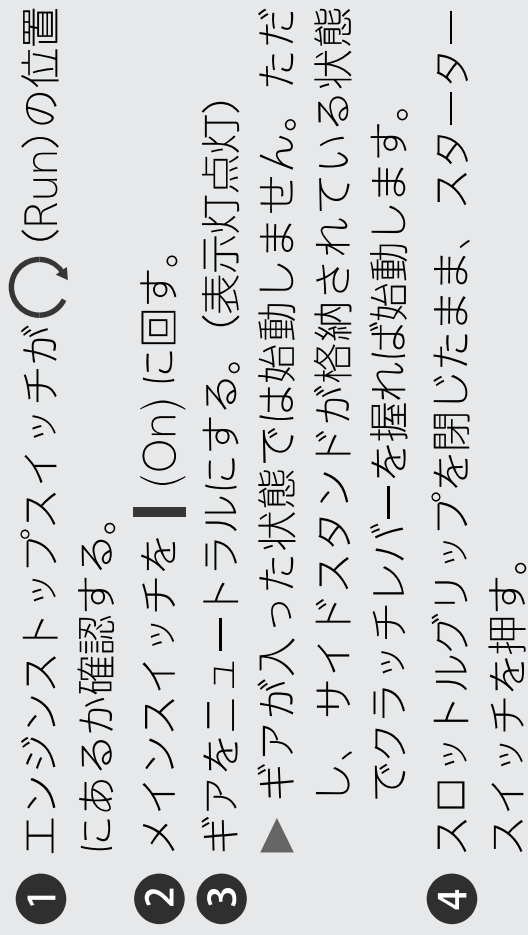 1 エンジンストップスイッチが (Run) の位置
にあるか確認する。
2 メインスイッチを (On) に回す。
3 ギアをニュートラルにする。(表示灯点灯)
▶ギアが入った状態では始動しません。ただ
し、サイドスタンドが格納されている状態
でクラッチレバーを握れば始動します。
4 スロットルグリップを閉じたまま、スターター
スイッチを押す。